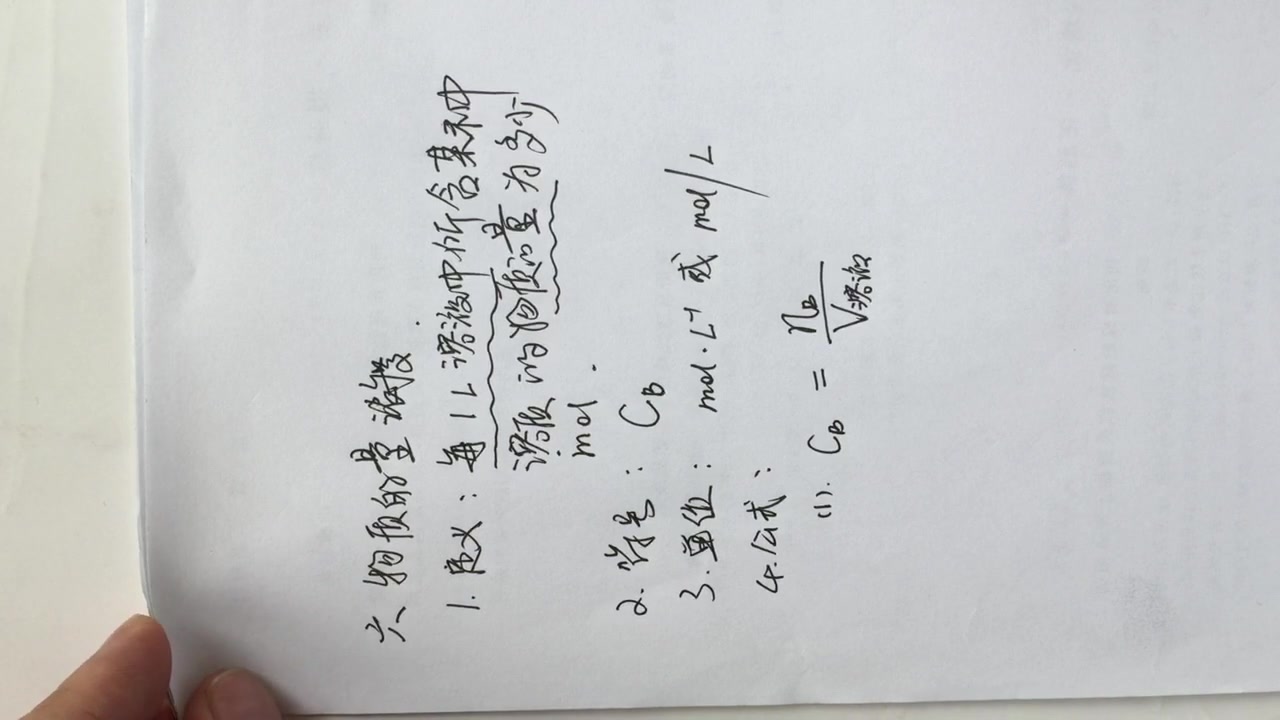 六、物质的量浓度
1. 定义：每1L溶液中所含某种
溶质的物质的量为多少
mol.
2. 符号：C_B
3. 单位：mol·L⁻¹ 或 mol/L
4. 公式：
(1). C_B = n_B / V溶液